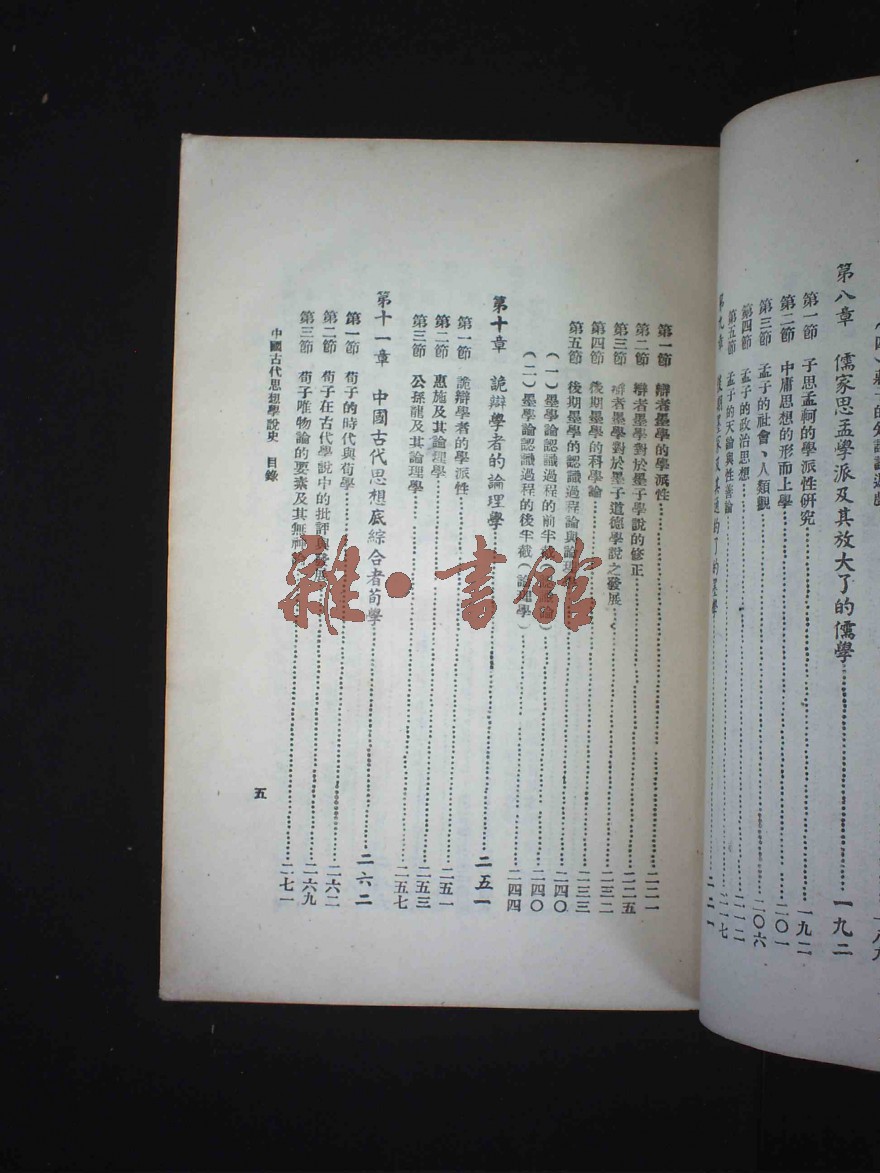 第八章　儒家思孟學派及其放大了的儒學……一九二
第一節　子思孟軻的學派性研究……一九二
第二節　中庸思想的形而上學……二〇一
第三節　孟子的社會、人類觀……二〇六
第四節　孟子的政治思想……二一二
第五節　孟子的天論與性善論……二一七
第九章……二二一
第一節　辯者墨學的學派性……二二一
第二節　辯者墨學對於墨子學說的修正……二二五
第三節　辯者墨學對於墨子道德學說之發展……二三二
第四節　後期墨學的科學論……二三三
第五節　後期墨學的認識過程論與論理學……二四〇
（一）墨學論認識過程的前半截……二四〇
（二）墨學論認識過程的後半截（論理學）……二四四
第十章　詭辯學者的論理學……二五一
第一節　詭辯學者的學派性……二五一
第二節　惠施及其論理學……二五三
第三節　公孫龍及其論理學……二五七
第十一章　中國古代思想底綜合者荀學……二六二
第一節　荀子的時代與荀學……二六二
第二節　荀子在古代學說中的批評與發展……二六九
第三節　荀子唯物論的要素及其無神論……二七一
中國古代思想學說史　目錄
五
雜·書館